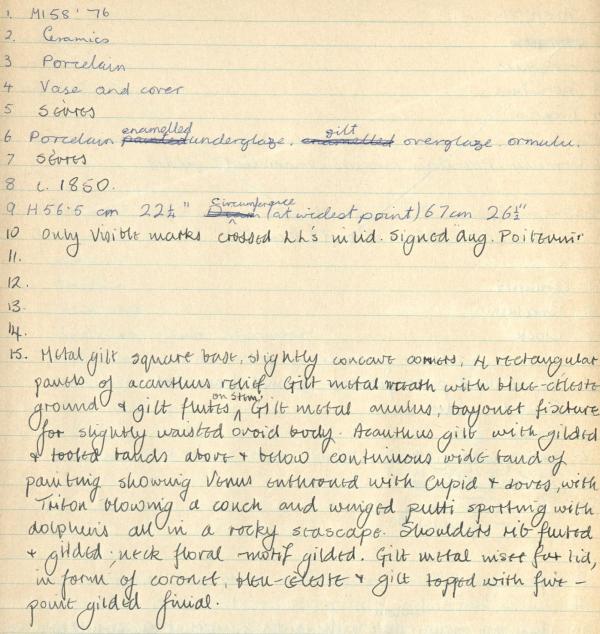 1. MI 58 '76
2. Ceramics
3 Porcelain
4 Vase and cover
5 Sèvres
6 Porcelain painted enamelled underglaze. enamelled gilt overglaze. ormulu.
7 Sèvres
8 c. 1850.
9 H 56.5 cm 22¼" Diam circumference (at widest point) 67cm 26½"
10 Only visible marks crossed LL's in lid. Signed Aug. Poitevin
11.
12.
13.
14.
15. Metal gilt square base, slightly concave corners, 4 rectangular
panels of acanthus relief. Gilt metal wreath with bleu-céleste
ground & gilt flutes on stem, Gilt metal annulus; bayonet fixture
for slightly waisted ovoid body. Acanthus gilt with gilded
& tooled bands above & below continuous wide band of
painting showing Venus enthroned with Cupid & doves, with
Triton blowing a conch and winged putti sporting with
dolphins all in a rocky seascape. Shoulders rib fluted
& gilded; neck floral motif gilded. Gilt metal inset for lid,
in form of coronet, bleu-céleste & gilt topped with five-
point gilded finial.